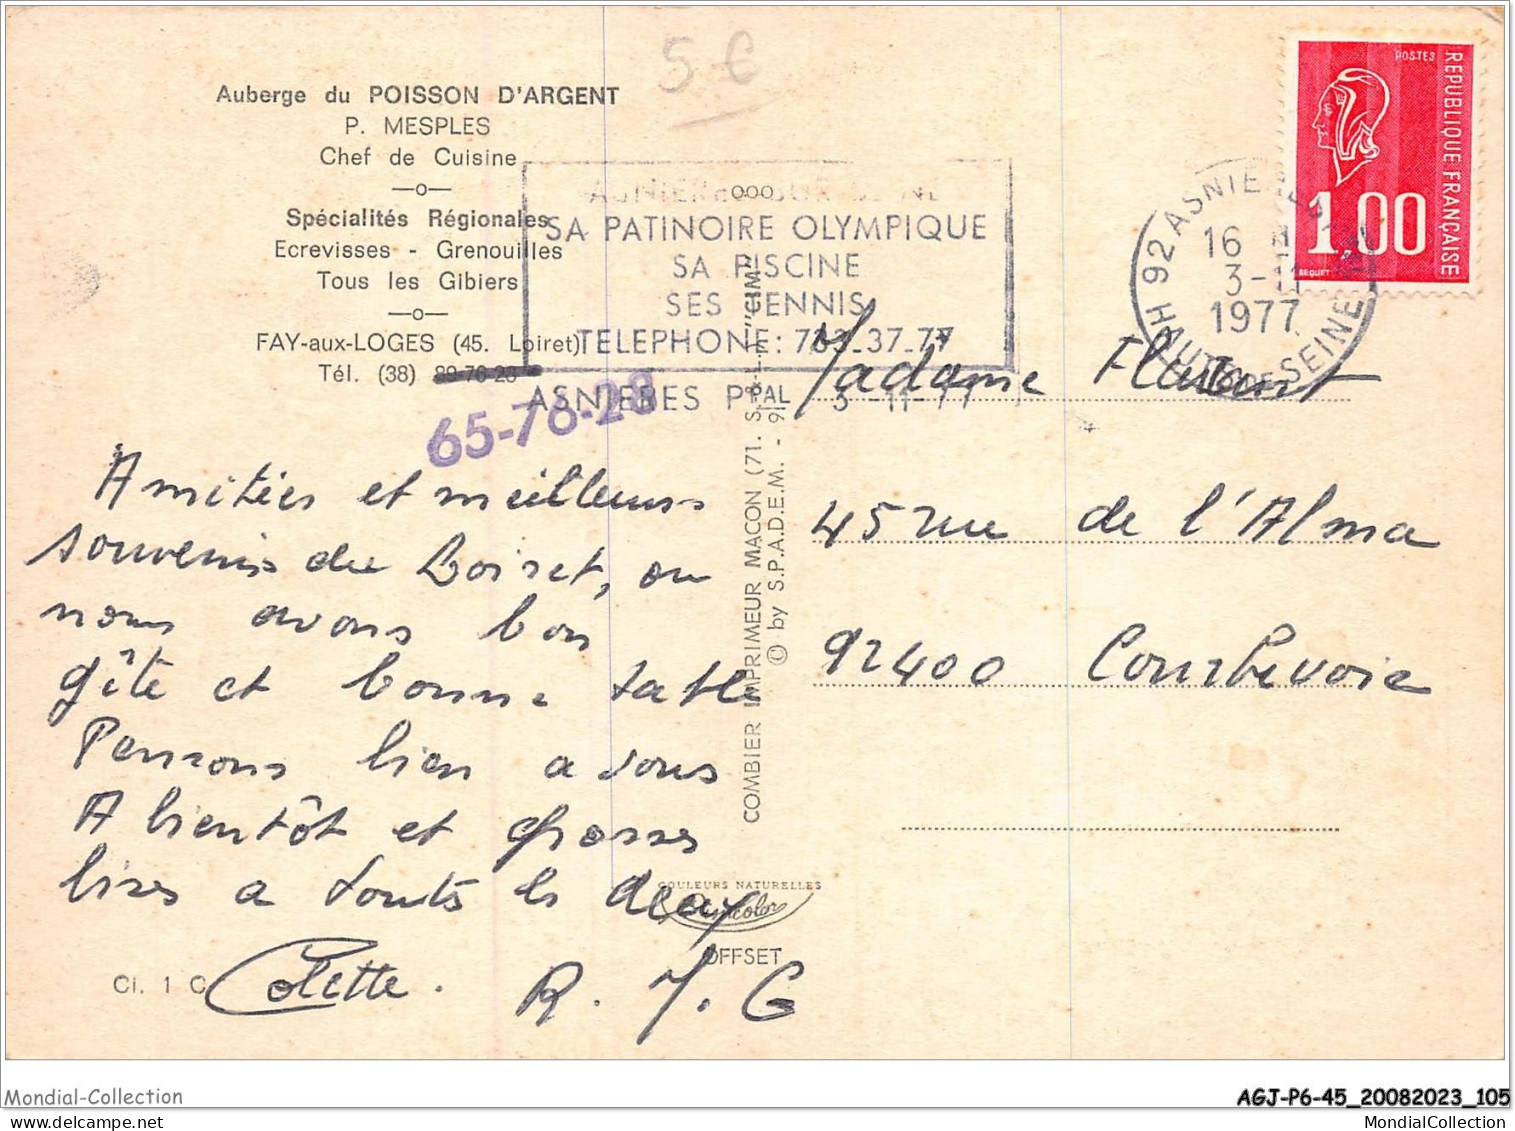 5 €
Auberge du POISSON D'ARGENT
P. MESPLES
Chef de Cuisine
—o—
Spécialités Régionales
Ecrevisses - Grenouilles
Tous les Gibiers
—o—
FAY-aux-LOGES (45. Loiret)
Tél. (38) 89-76-28
65-76-28
ASNIERES SUR SEINE
SA PATINOIRE OLYMPIQUE
SA PISCINE
SES TENNIS
TELEPHONE: 793-37-77
ASNIERES PPAL 3-11-77
POSTES
REPUBLIQUE FRANÇAISE
1,00
BEQUET
92 ASNIERES
16 H
3-11
1977
HAUTS DE SEINE
Amitiés et meilleurs
souvenirs du Loiret, ou
nous avons bon
gîte et bonne table
Pensons bien a vous
A bientôt et grosses
bises a touts les deux
Colette. R. J. G
Madame
45 rue de l'Alma
92400 Courbevoie
COMBIER IMPRIMEUR MACON (71. S.-&-L.) "CIM"
© by S.P.A.D.E.M. - 9
COULEURS NATURELLES
OFFSET
Cl. 1 C
Mondial-Collection
AGJ-P6-45_20082023_105
MondialCollection